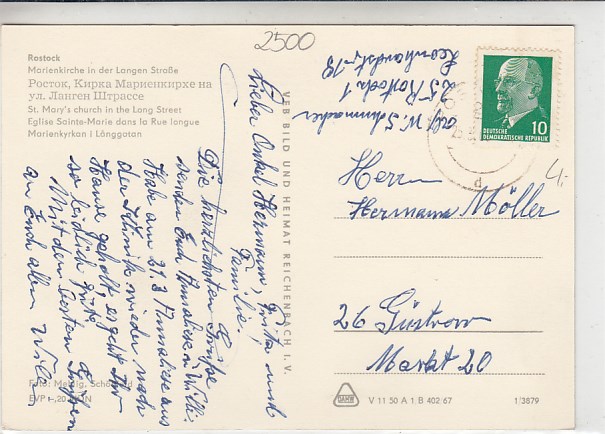 2500
Rostock
Marienkirche in der Langen Straße
Росток, Кирка Мариенкирхе на
ул. Ланген Штрассе
St. Mary's church in the Long Street
Eglise Sainte-Marie dans la Rue longue
Marienkyrkan i Långgatan
Lieber Onkel Hermann, und
Familie!
Die herzlichsten Grüße
senden Euch Annaliese u. Willi.
Habe am 21.3 Annaliese aus
der Klinik wieder nach
Hause geholt, es geht Ihr
so leidlich gut.
Mit den besten Grüßen
an Euch allen Willi
Foto: Meldig, Schö
EVP –,20 MDN
VEB BILD UND HEIMAT REICHENBACH I. V.
Abs. W. Schumacher
25 Rostock 1
Leonhardstr. 18
DEUTSCHE
DEMOKRATISCHE REPUBLIK
10
d
4,-
Herrn
Hermann Möller
26 Güstrow
Markt 20
V 11 50 A 1 B 402/67
1/3879